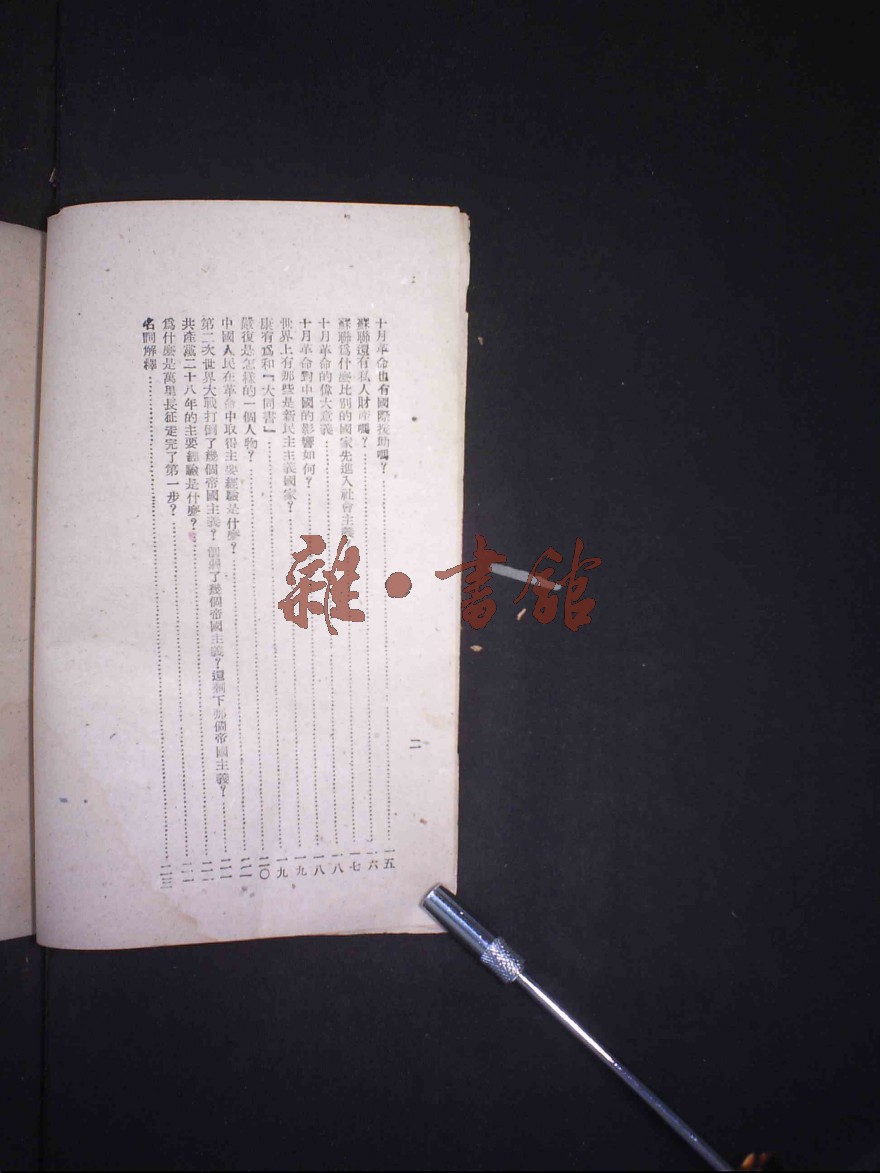 二
十月革命也有國際援助嗎?……一五
蘇聯還有私人財產嗎?……一六
蘇聯爲什麼比別的國家先進入社會主義……一七
十月革命的偉大意義……一八
十月革命對中國的影響如何?……一八
世界上有那些是新民主主義國家?……一九
康有爲和「大同書」……一九
嚴復是怎樣的一個人物?……二〇
中國人民在革命中取得主要經驗是什麼?……二一
第二次世界大戰打倒了幾個帝國主義?削弱了幾個帝國主義?還剩下那個帝國主義?……二一
共產黨二十八年的主要經驗是什麼?……
爲什麼是萬里長征走完了第一步?……
名詞解釋……二三
雜·書館